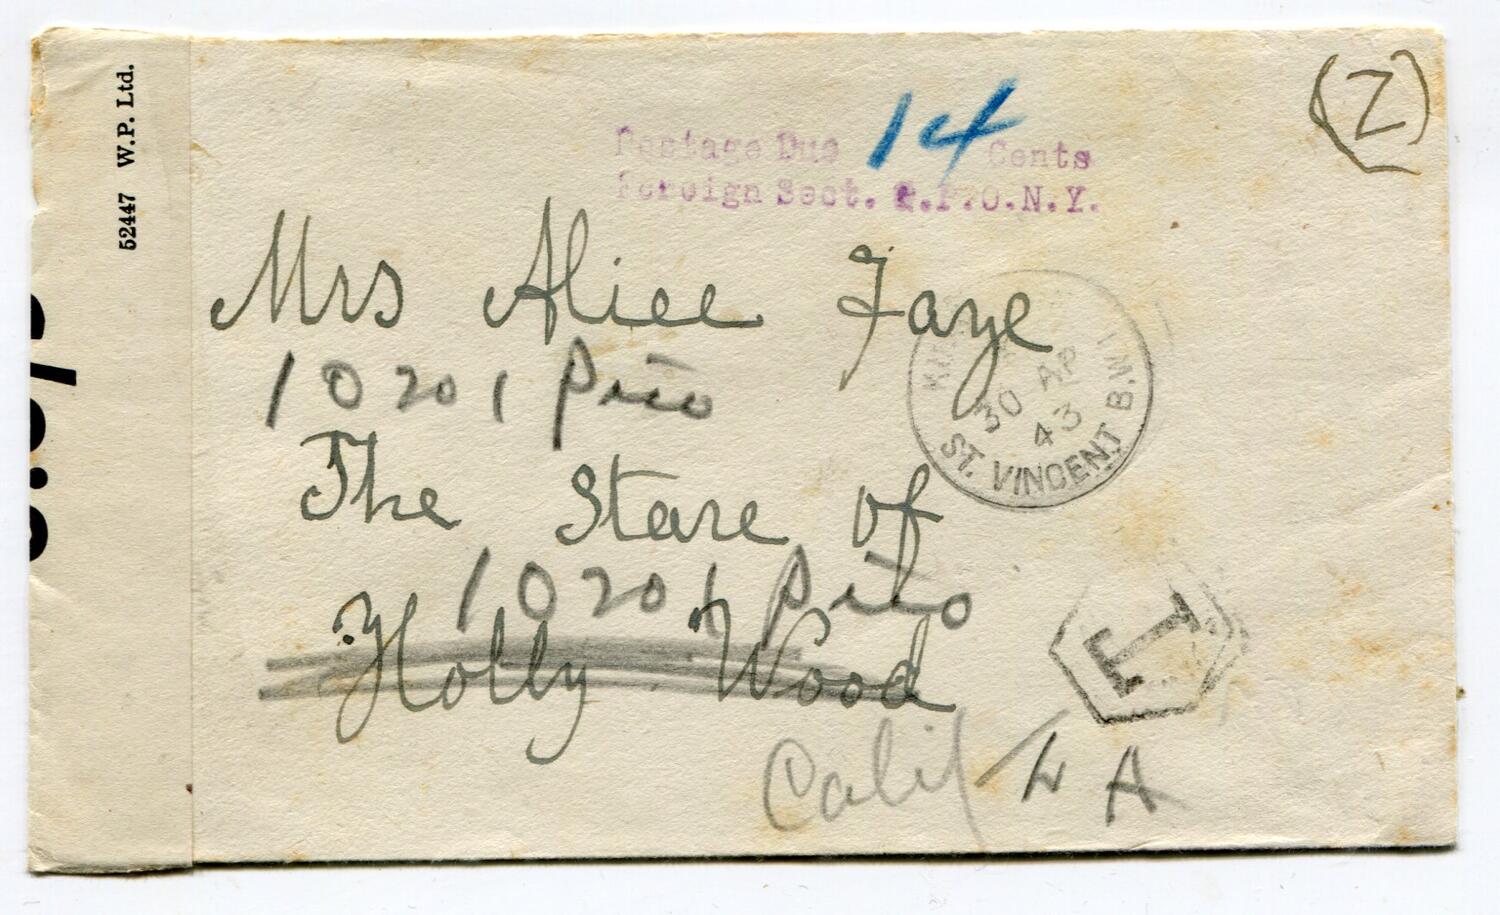 52447 W.P. Ltd.
(Z)
Postage Due 14 Cents
Foreign Sect. G.P.O.N.Y.
Mrs Alice Faye
10201 Pico
30 AP
43
ST. VINCENT B.W.I.
The Stare of
10201 Pico
Holly Wood
T
Calif / L A